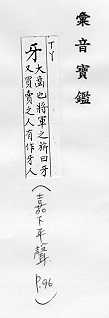 彙音寶鑑
牙 大齒也將軍之旂曰牙
又買賣之人有作牙人
(嘉下平聲 P.96)